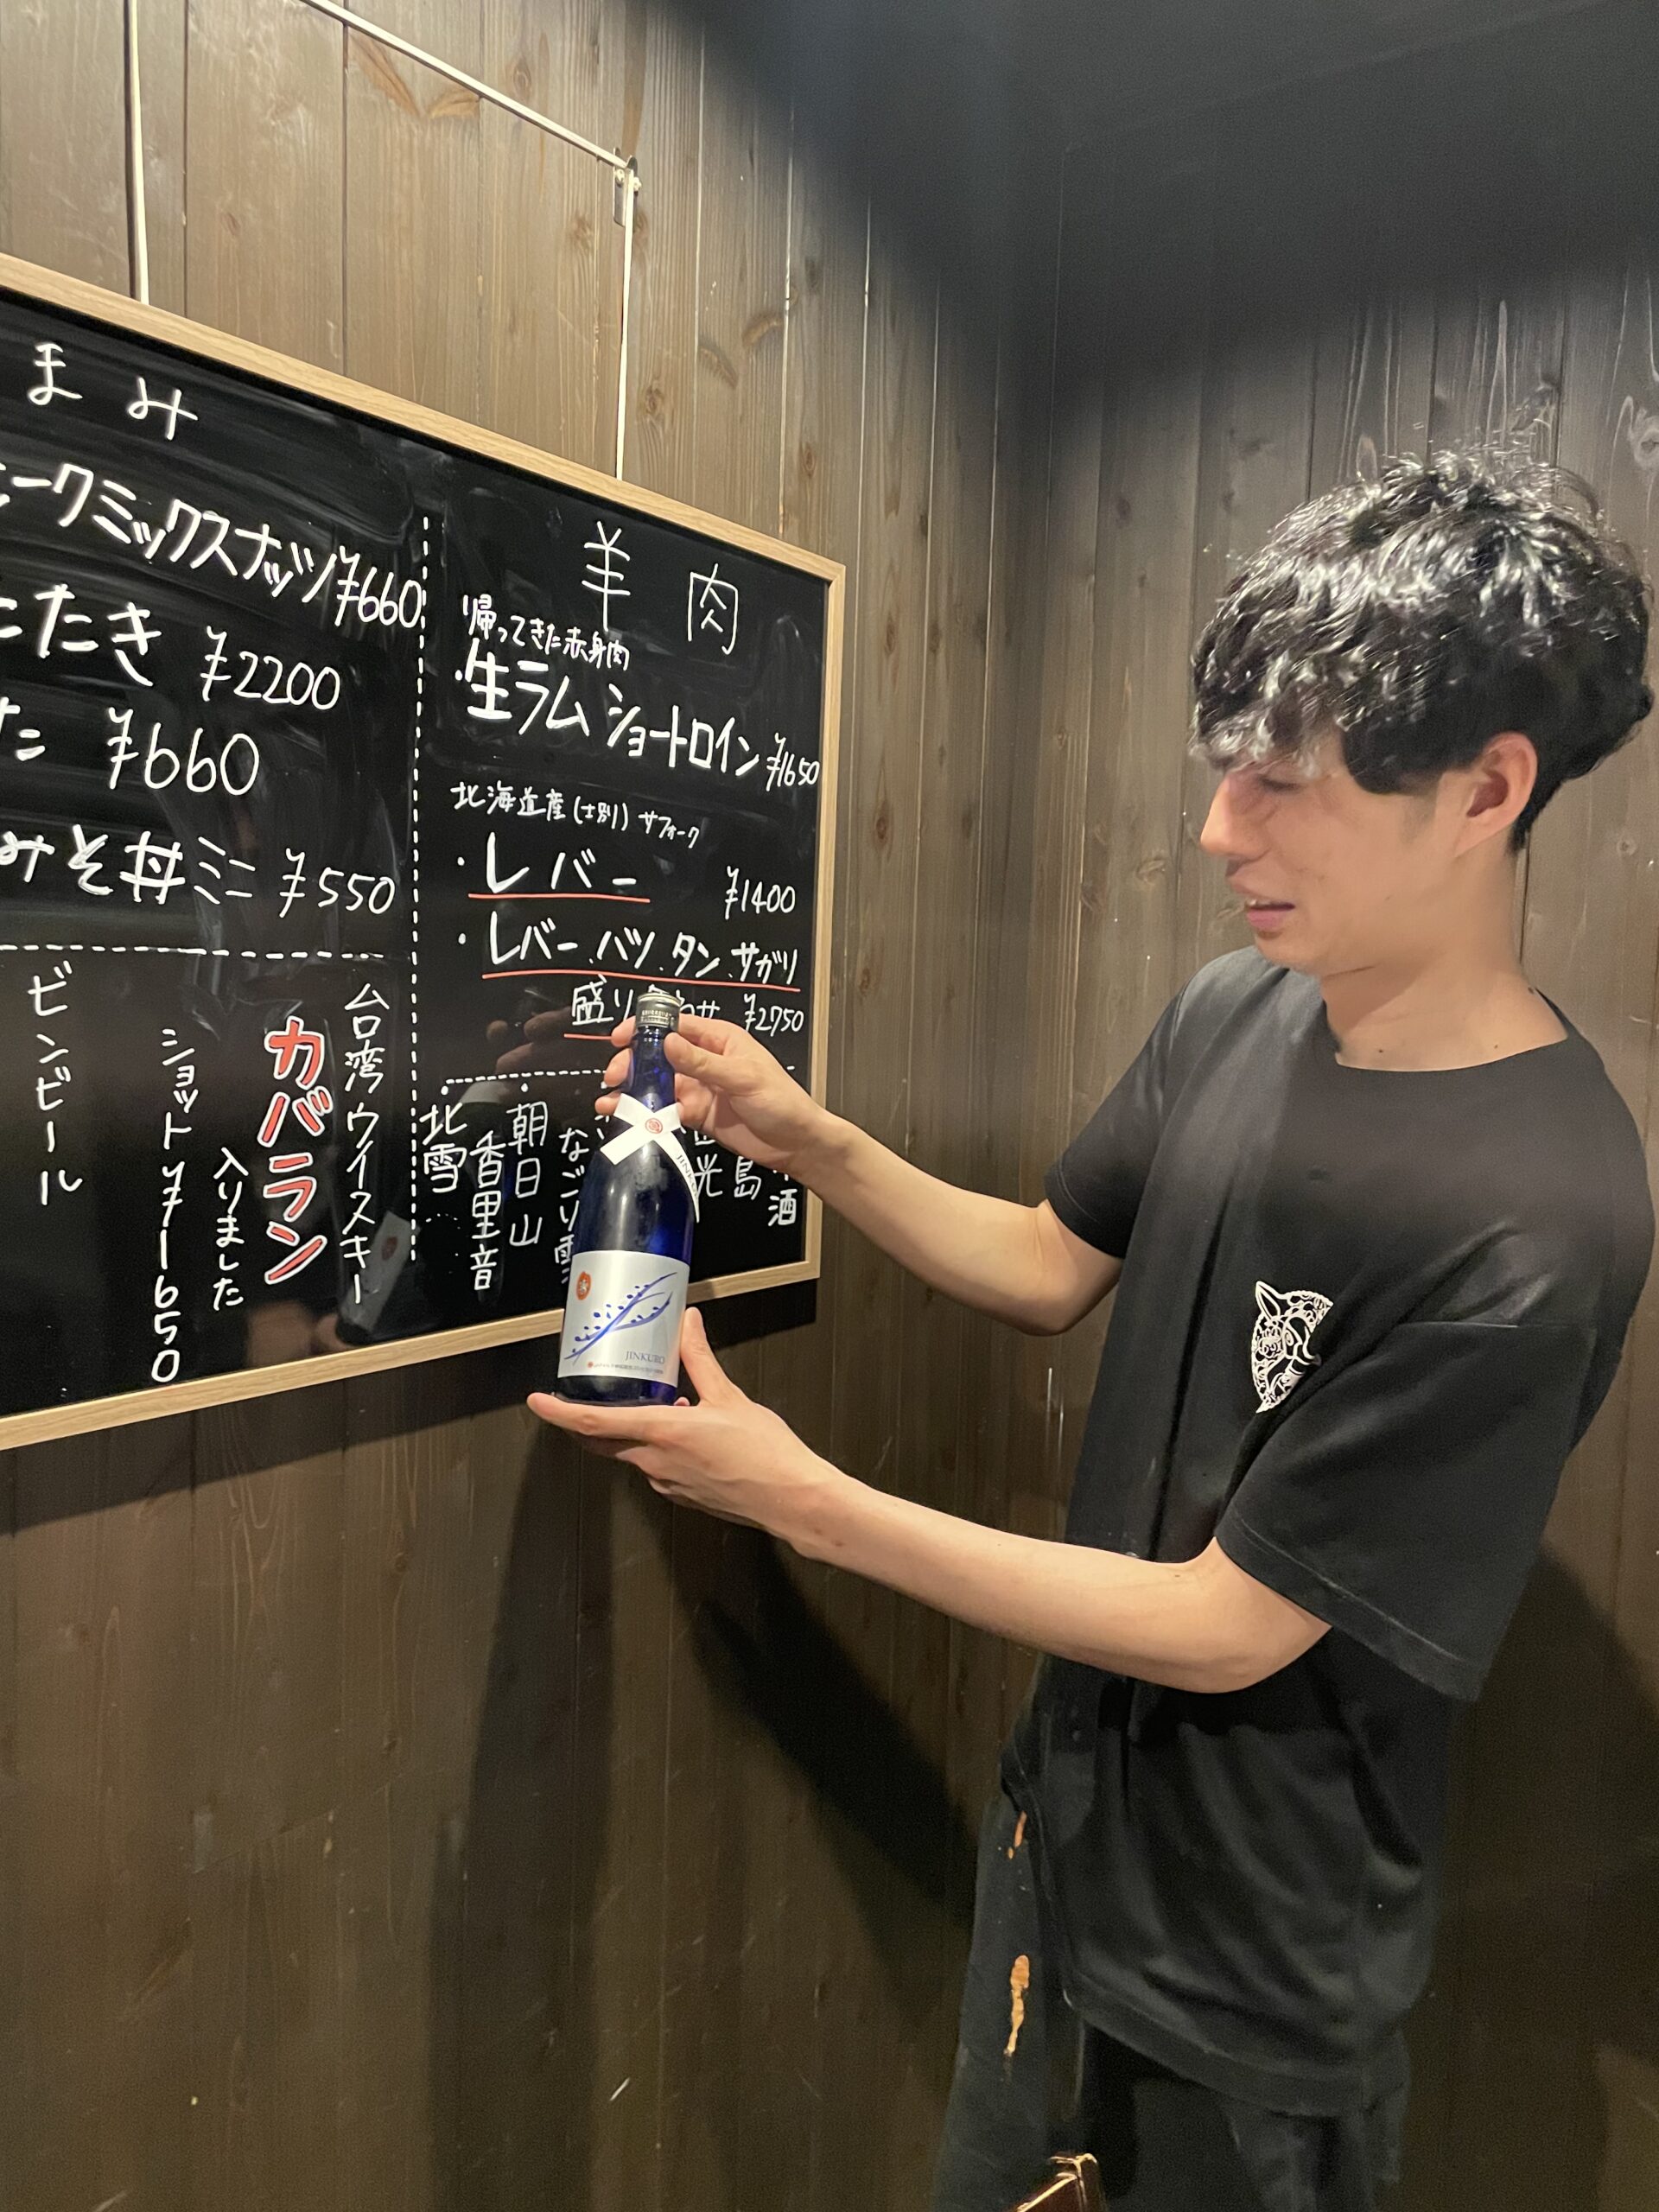 まみ
ークミックスナッツ ¥660
たたき ¥2200
た ¥660
みそ丼ミニ ¥550
ビンビール
台湾ウイスキー
カバラン
入りました
ショット ¥1650
羊肉
帰ってきた赤身肉
・生ラムショートロイン ¥1650
北海道産(士別)サフォーク
・レバー ¥1400
・レバー、ハツ、タン、サガリ
盛り ¥2750
酒
島
光
なごり雪
朝日山
香里音
北雪
JINKURO